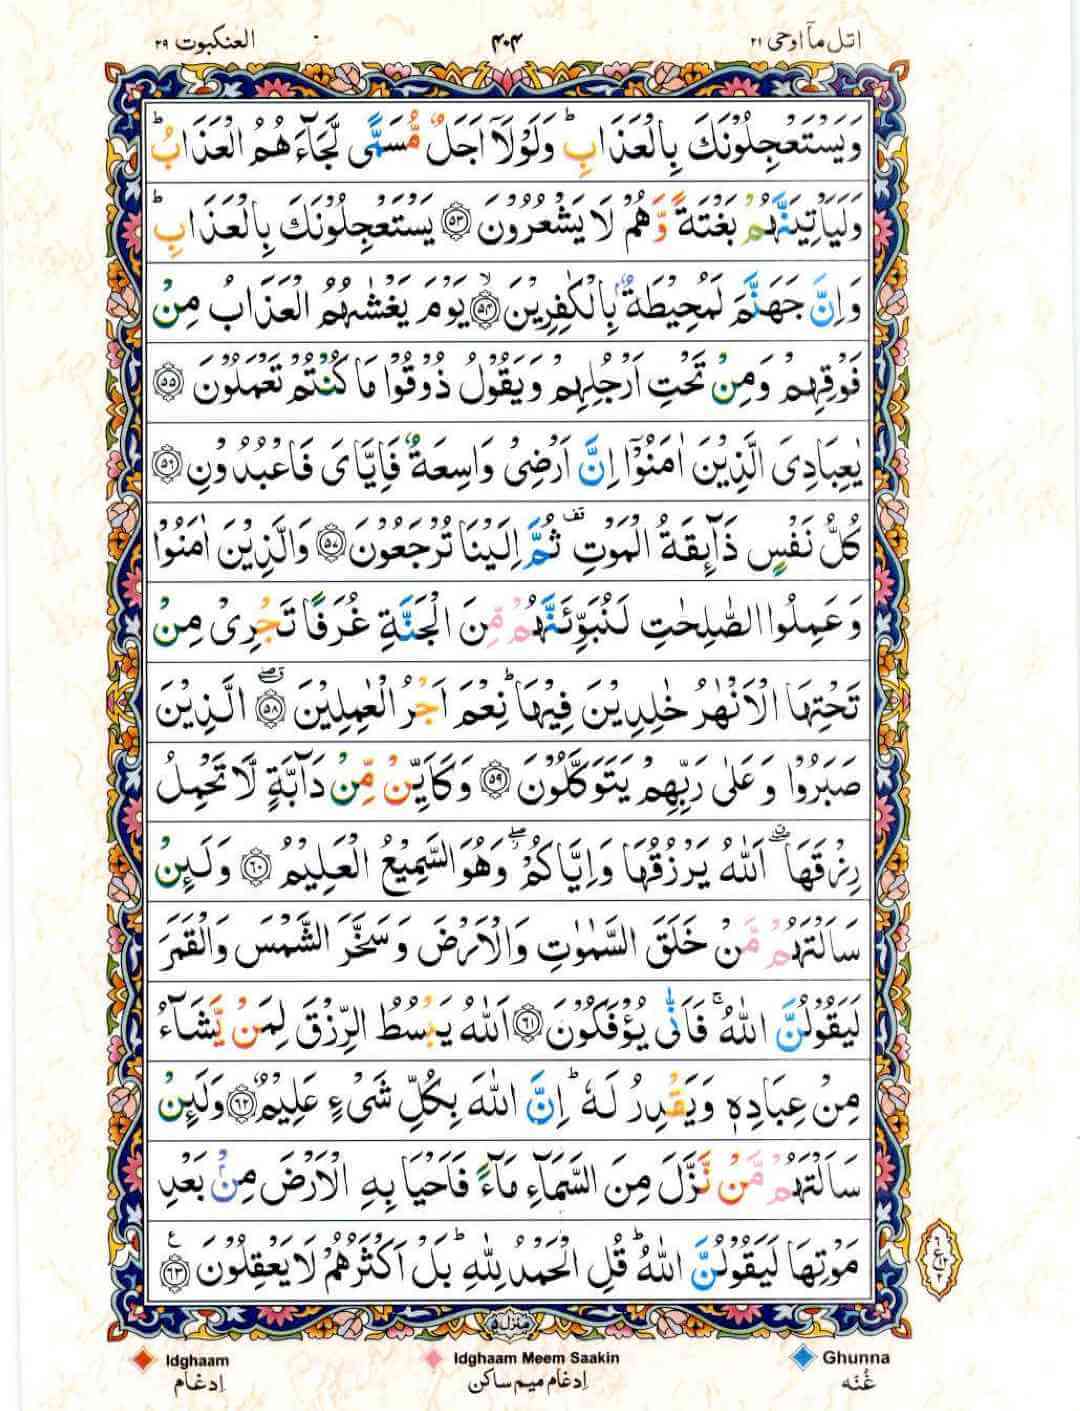 اتل مآ اوحی ۲۱
۴۰۴
العنکبوت ۲۹
وَيَسْتَعْجِلُوْنَكَ بِالْعَذَابِ ؕ وَلَوْلَاۤ اَجَلٌ مُّسَمًّى لَّجَآءَهُمُ الْعَذَابُ ؕ
وَلَيَاْتِيَنَّهُمْ بَغْتَةً وَّهُمْ لَا يَشْعُرُوْنَ ۝۵۳ يَسْتَعْجِلُوْنَكَ بِالْعَذَابِ ؕ
وَاِنَّ جَهَنَّمَ لَمُحِيْطَةٌۢ بِالْكٰفِرِيْنَ ۙ۝۵۴ يَوْمَ يَغْشٰىهُمُ الْعَذَابُ مِنْ
فَوْقِهِمْ وَمِنْ تَحْتِ اَرْجُلِهِمْ وَيَقُوْلُ ذُوْقُوْا مَا كُنْتُمْ تَعْمَلُوْنَ ۝۵۵
يٰعِبَادِىَ الَّذِيْنَ اٰمَنُوْۤا اِنَّ اَرْضِىْ وَاسِعَةٌ فَاِيَّاىَ فَاعْبُدُوْنِ ۝۵۶
كُلُّ نَفْسٍ ذَآئِقَةُ الْمَوْتِ ۟ ثُمَّ اِلَيْنَا تُرْجَعُوْنَ ۝۵۷ وَالَّذِيْنَ اٰمَنُوْا
وَعَمِلُوا الصّٰلِحٰتِ لَنُبَوِّئَنَّهُمْ مِّنَ الْجَنَّةِ غُرَفًا تَجْرِىْ مِنْ
تَحْتِهَا الْاَنْهٰرُ خٰلِدِيْنَ فِيْهَا ؕ نِعْمَ اَجْرُ الْعٰمِلِيْنَ ۝۵۸ الَّذِيْنَ
صَبَرُوْا وَعَلٰى رَبِّهِمْ يَتَوَكَّلُوْنَ ۝۵۹ وَكَاَيِّنْ مِّنْ دَآبَّةٍ لَّا تَحْمِلُ
رِزْقَهَا ۖ اَللّٰهُ يَرْزُقُهَا وَاِيَّاكُمْ ۖ وَهُوَ السَّمِيْعُ الْعَلِيْمُ ۝۶۰ وَلَئِنْ
سَاَلْتَهُمْ مَّنْ خَلَقَ السَّمٰوٰتِ وَالْاَرْضَ وَسَخَّرَ الشَّمْسَ وَالْقَمَرَ
لَيَقُوْلُنَّ اللّٰهُ ۚ فَاَنّٰى يُؤْفَكُوْنَ ۝۶۱ اَللّٰهُ يَبْسُطُ الرِّزْقَ لِمَنْ يَّشَآءُ
مِنْ عِبَادِهٖ وَيَقْدِرُ لَهٗ ؕ اِنَّ اللّٰهَ بِكُلِّ شَىْءٍ عَلِيْمٌ ۝۶۲ وَلَئِنْ
سَاَلْتَهُمْ مَّنْ نَّزَّلَ مِنَ السَّمَآءِ مَآءً فَاَحْيَا بِهِ الْاَرْضَ مِنْۢ بَعْدِ
مَوْتِهَا لَيَقُوْلُنَّ اللّٰهُ ؕ قُلِ الْحَمْدُ لِلّٰهِ ؕ بَلْ اَكْثَرُهُمْ لَا يَعْقِلُوْنَ ۝۶۳ ع
منزل ۵
Ghunna
Idghaam Meem Saakin
Idghaam
غُنّه
اِدغام میم ساکن
اِدغام